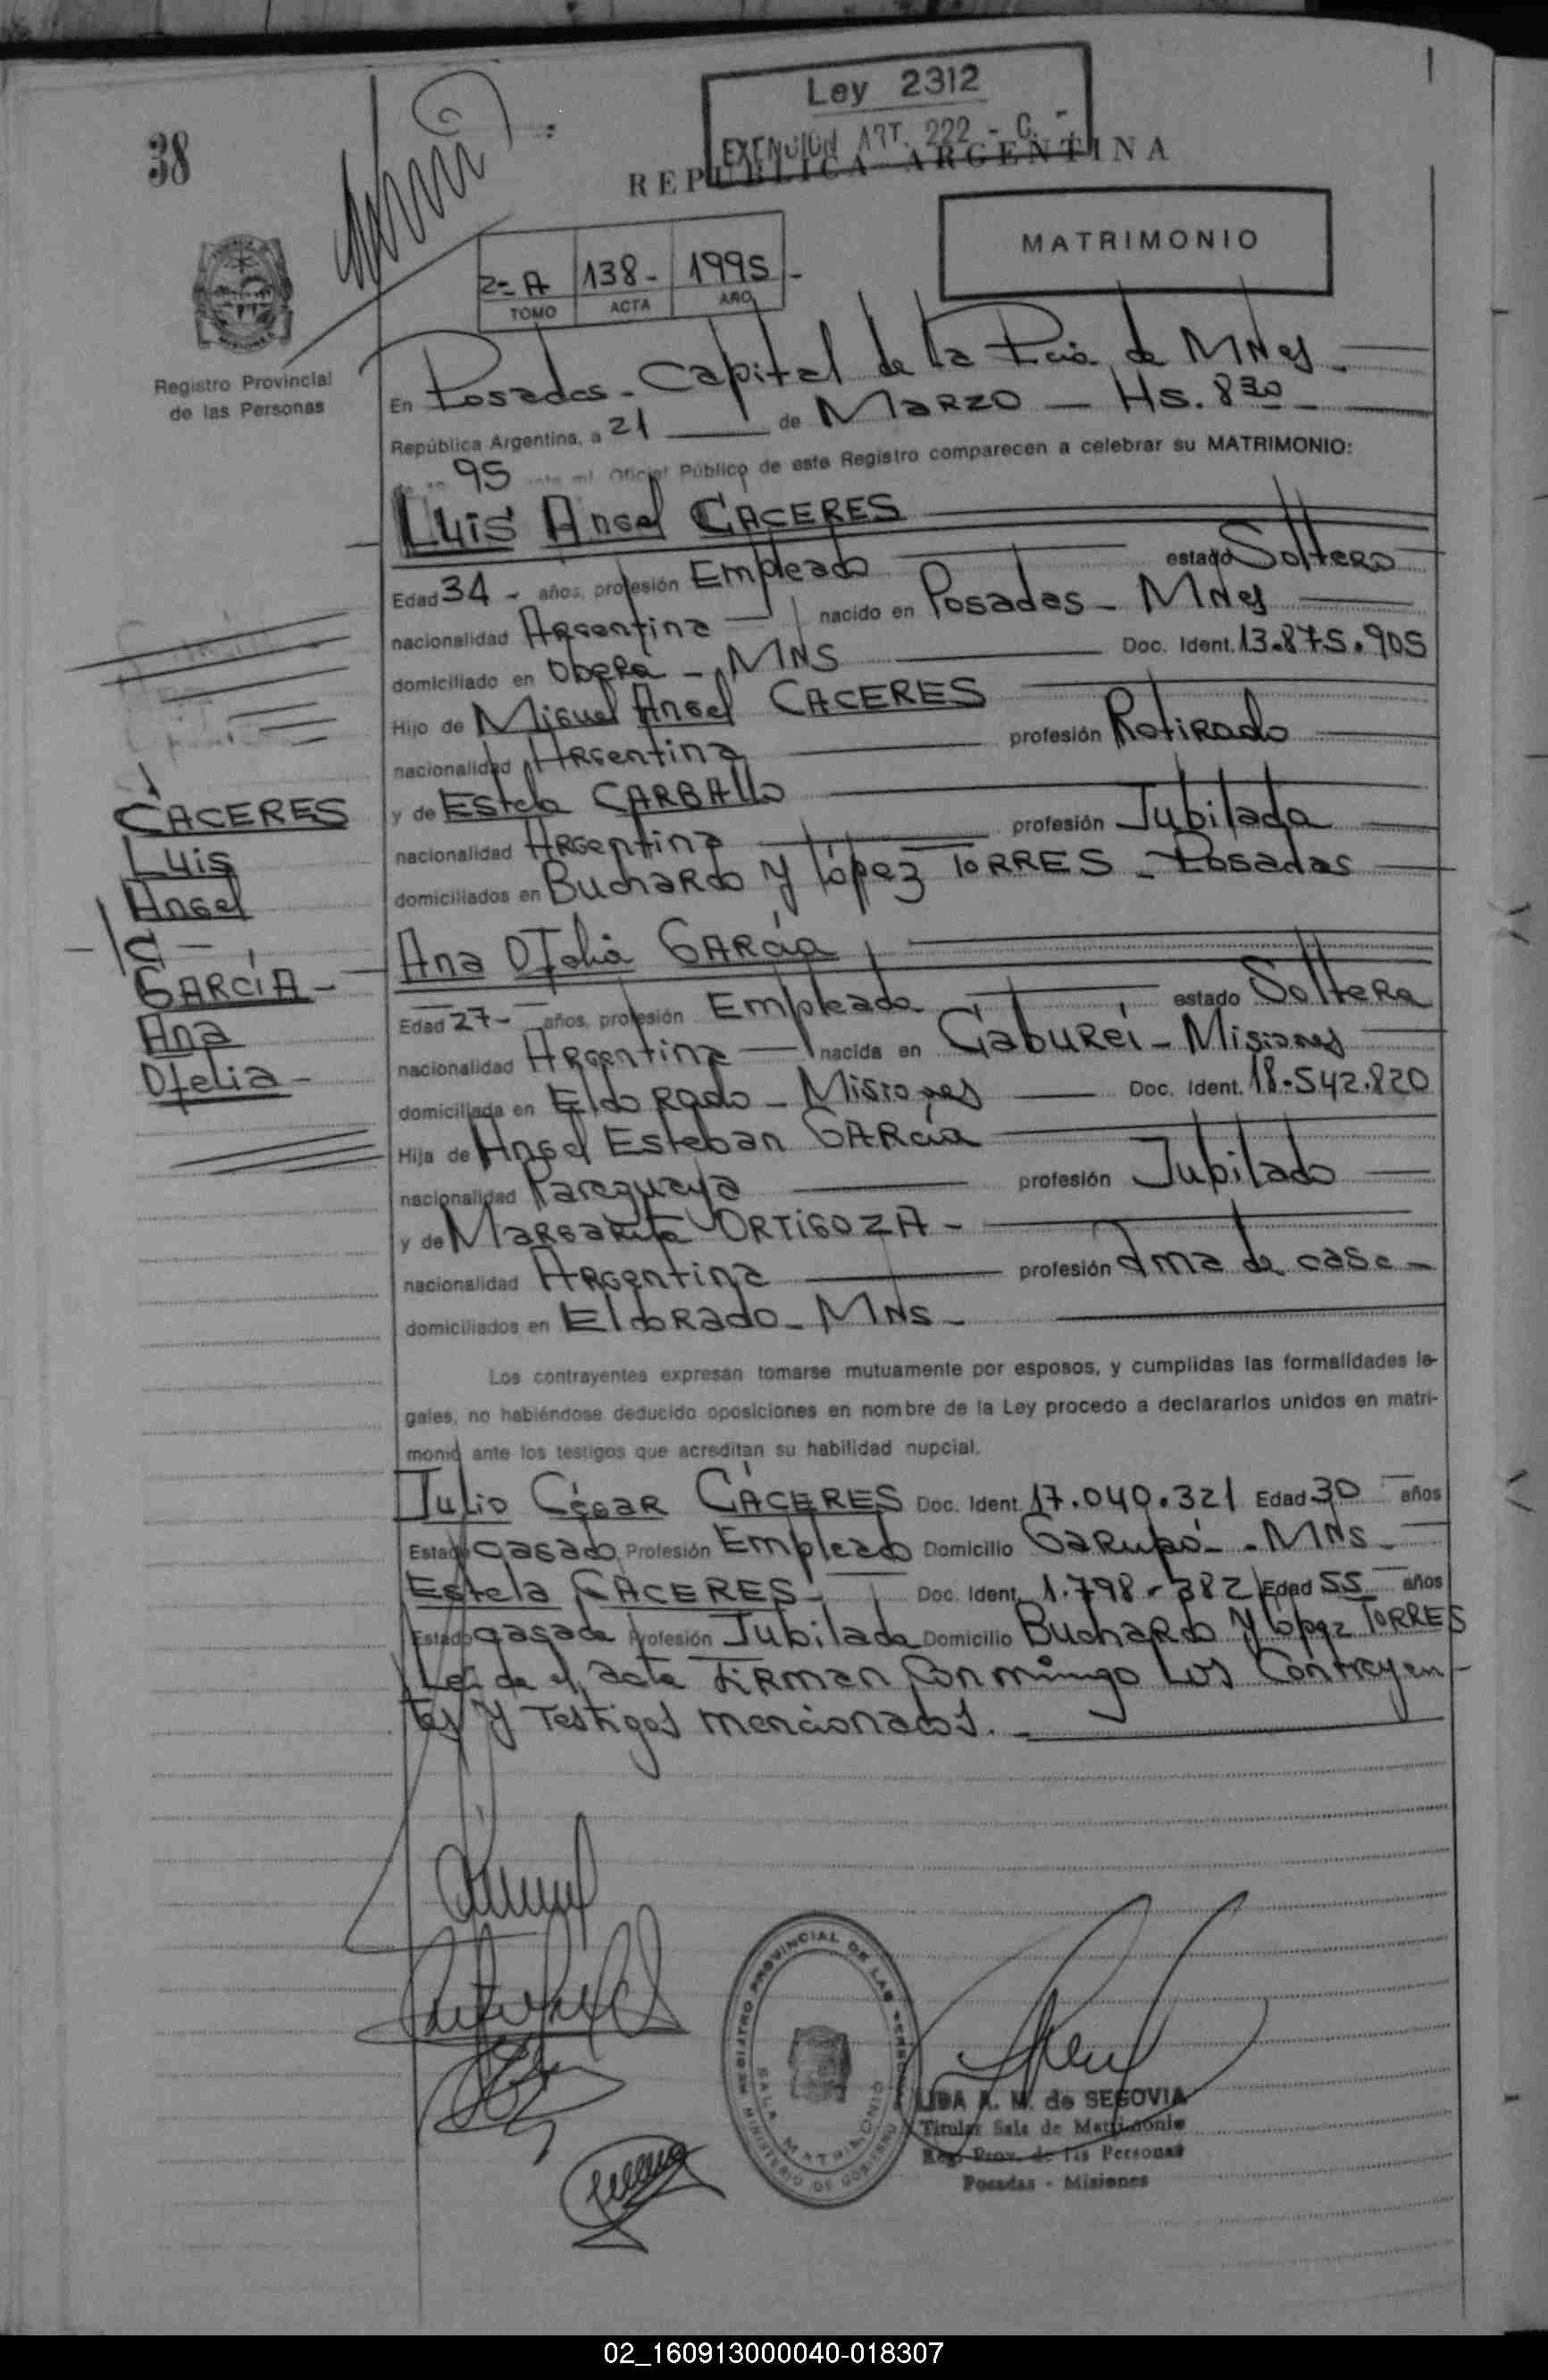 Ley 2312
EXENCION ART. 222 - C. -
38
REPUBLICA ARGENTINA
MATRIMONIO
2= A 138- 1995 -
TOMO ACTA AÑO
Registro Provincial
de las Personas
En Posadas - Capital de la Pcia de MNes -
República Argentina, a 21 de MARZO - Hs. 8 30 -
95 ante mí Oficial Público de este Registro comparecen a celebrar su MATRIMONIO:
Luis Angel CACERES
Edad 34 - años, profesión Empleado estado Soltero
nacionalidad Argentina nacido en Posadas - MNes
domiciliado en Oberá - MNS Doc. Ident. 13.875.905
Hijo de Miguel Angel CACERES
nacionalidad Argentina profesión Retirado
y de Estela CARBAllo
nacionalidad Argentina profesión Jubilada
domiciliados en Buchardo y López TORRES - Posadas
CACERES
Luis
Angel
C -
GARCíA -
Ana
Ofelia -
Ana Ofelia GARCía
Edad 27 - años, profesión Empleada estado Soltera
nacionalidad Argentina nacida en Gabureí - Misiones
domiciliada en Eldorado - Misiones Doc. Ident. 18.542.820
Hija de Angel Esteban GARCía
nacionalidad Paraguaya profesión Jubilado
y de MARGARITA ORTIGOZA -
nacionalidad Argentina profesión Ama de casa -
domiciliados en Eldorado - MNS -
Los contrayentes expresan tomarse mutuamente por esposos, y cumplidas las formalidades le-
gales, no habiéndose deducido oposiciones en nombre de la Ley procedo a declararlos unidos en matri-
monio ante los testigos que acreditan su habilidad nupcial.
Julio César CÁCERES Doc. Ident. 17.040.321 Edad 30 años
Estado Casado Profesión Empleado Domicilio Garupá - MNS -
Estela CACERES - Doc. Ident. 1.798-382 Edad 55 años
Estado Casada Profesión Jubilada Domicilio Buchardo y López TORRES
Leída el acta FIRMAN Conmigo Los Contrayen-
tes y Testigos mencionados. -
REGISTRO PROVINCIAL DE LAS PERSONAS
SALA MATRIMONIO
MINISTERIO DE GOBIERNO
LIDA A. M. de SEGOVIA
Titular Sala de Matrimonio
Reg. Prov. de las Personas
Posadas - Misiones
02_160913000040-018307